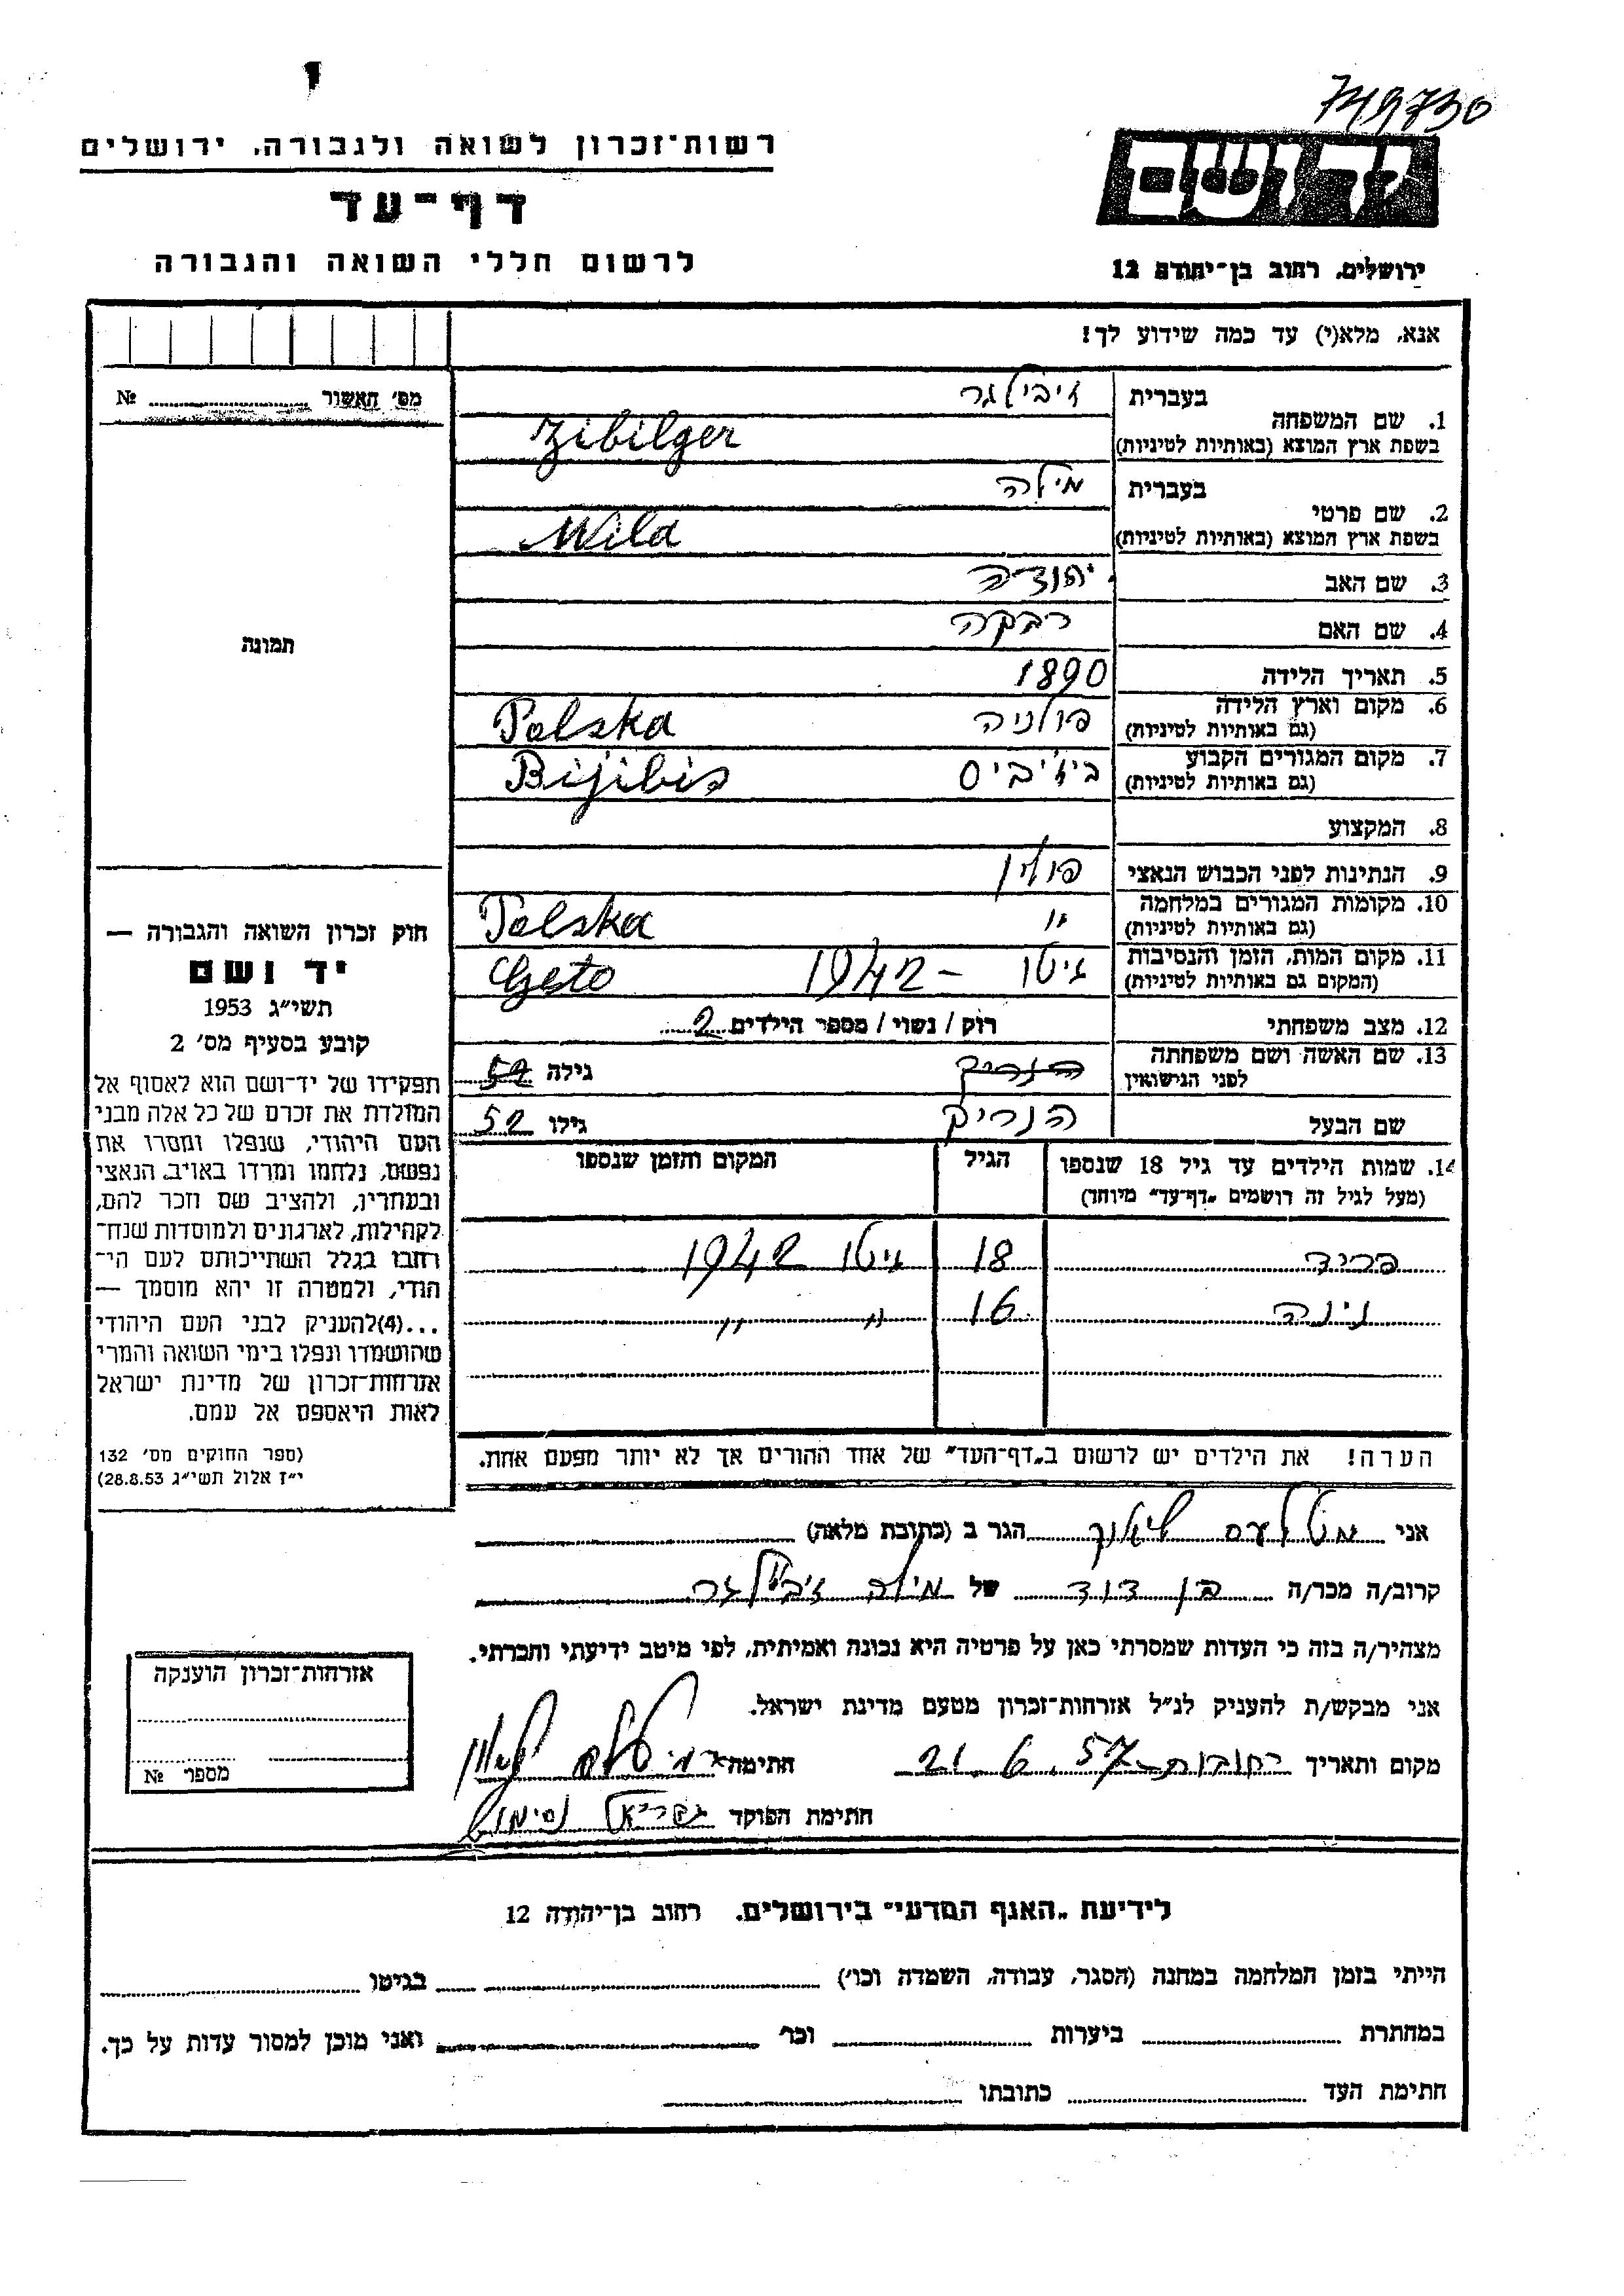 749730
רשות־זכרון לשואה ולגבורה, ירושלים
דף־עד
לרשום חללי השואה והגבורה
ידושם
ירושלים, רחוב בן־יהודה 12
אנא, מלא(י) עד כמה שידוע לך!
מס׳ האשור № 
1. שם המשפחה
בעברית זיבילגר
בשפת ארץ המוצא (באותיות לטיניות) Zibilger
2. שם פרטי
בעברית מילה
בשפת ארץ המוצא (באותיות לטיניות) Mila
3. שם האב יהודה
4. שם האם רבקה
5. תאריך הלידה 1890
6. מקום וארץ הלידה (גם באותיות לטיניות) פולניה Polska
7. מקום המגורים הקבוע (גם באותיות לטיניות) ביז׳יביס Bijibis
8. המקצוע
9. הנתינות לפני הכבוש הנאצי פולין
10. מקומות המגורים במלחמה (גם באותיות לטיניות) " Polska
11. מקום המות, הזמן והנסיבות (המקום גם באותיות לטיניות) גיטו – 1942 Geto
12. מצב משפחתי רוק / נשוי / מספר הילדים 2
13. שם האשה ושם משפחתה לפני הנישואין הנריק גילה 52
שם הבעל הנריק גילו 52
14. שמות הילדים עד גיל 18 שנספו הגיל המקום והזמן שנספו
(מעל לגיל זה רושמים „דף־עד״ מיוחד)
פריד 18 גיטו 1942
נינה 16 " "
הערה! את הילדים יש לרשום ב„דף־העד״ של אחד ההורים אך לא יותר מפעם אחת.
תמונה
חוק זכרון השואה והגבורה —
יד ושם
תשי״ג 1953
קובע בסעיף מס׳ 2
תפקידו של יד־ושם הוא לאסוף אל
המולדת את זכרם של כל אלה מבני
העם היהודי, שנפלו ומסרו את
נפשם, נלחמו ומרדו באויב הנאצי
ובעוזריו, ולהציב שם וזכר להם,
לקהילות, לארגונים ולמוסדות שנח־
רחבו בגלל השתייכותם לעם הי־
הודי, ולמטרה זו יהא מוסמך —
...(4)להעניק לבני העם היהודי
שהושמדו ונפלו בימי השואה והמרי
אזרחות־זכרון של מדינת ישראל
לאות היאספם אל עמם.
(ספר החוקים מס׳ 132
י״ז אלול תשי״ג 28.8.53)
אני הגר ב (כתובת מלאה)
קרוב/ה מכר/ה בן דוד של מילה זיבילגר
מצהיר/ה בזה כי העדות שמסרתי כאן על פרטיה היא נכונה ואמיתית, לפי מיטב ידיעתי והכרתי.
אני מבקש/ת להעניק לנ״ל אזרחות־זכרון מטעם מדינת ישראל.
מקום ותאריך רחובות 21.6.57 חתימה
חתימת הפוקד גבריאל
אזרחות־זכרון הוענקה
מספר №
לידיעת „האגף המדעי״ בירושלים, רחוב בן־יהודה 12
הייתי בזמן המלחמה במחנה (הסגר, עבודה, השמדה וכו׳) בגיטו
במחתרת ביערות וכו׳ ואני מוכן למסור עדות על כך.
חתימת העד כתובתו